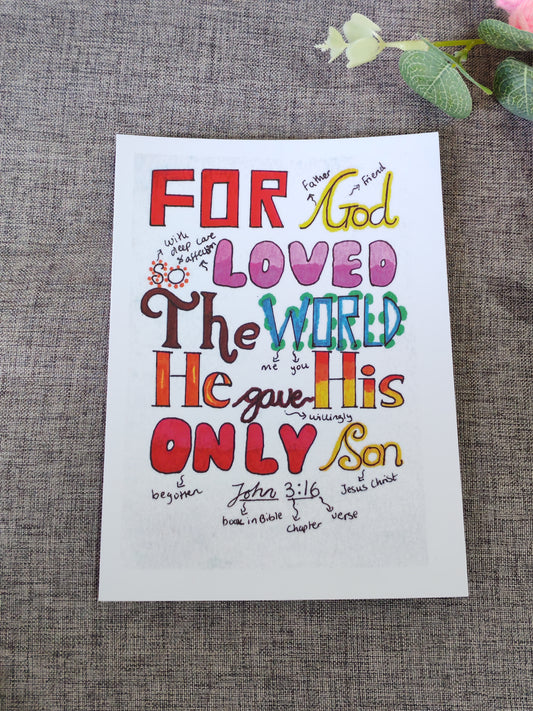 FOR God
Father
Friend
With
deep care
& affection
So LOVED
The WORLD
me you
He gave His
willingly
ONLY Son
begotten
Jesus Christ
John 3:16
book in Bible
chapter
verse